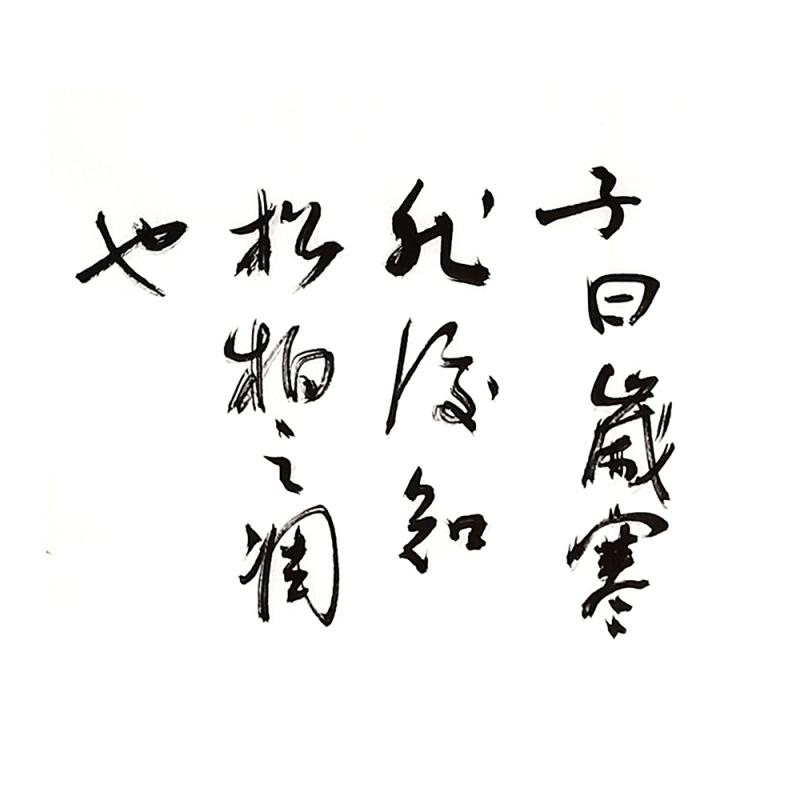 子曰歲寒
然後知
松柏之凋
也